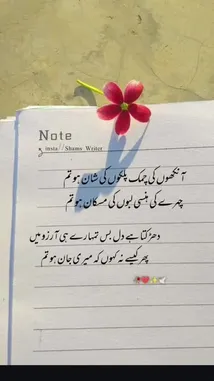 Note
insta // Shamy_Writer
آنکھوں کی چمک پلکوں کی شان ہو تم
چہرے کی ہنسی لبوں کی مسکان ہو تم
دھڑکتا ہے دل بس تمہارے ہی آرزو میں
پھر کیسے نہ کہوں کہ میری جان ہو تم